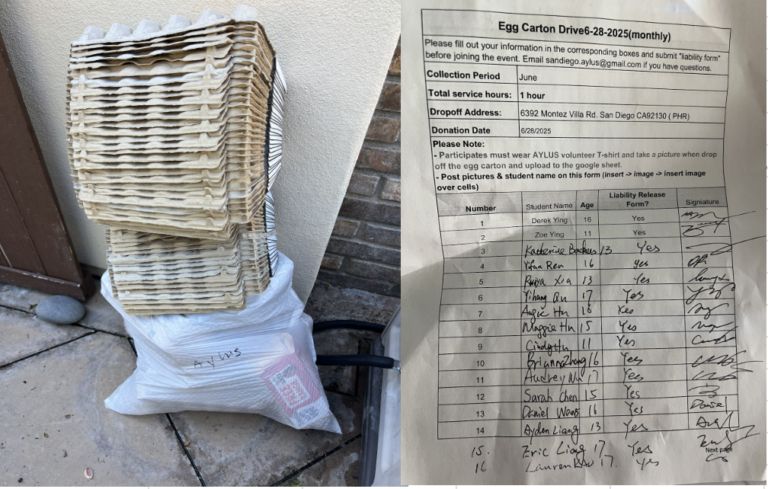 Aylus
Egg Carton Drive6-28-2025(monthly)
Please fill out your information in the corresponding boxes and submit "liability form"
before joining the event. Email sandiego.aylus@gmail.com if you have questions.
Collection Period June
Total service hours: 1 hour
Dropoff Address: 6392 Montez Villa Rd. San Diego CA92130 ( PHR)
Donation Date 6/28/2025
Please Note:
- Participates must wear AYLUS volunteer T-shirt and take a picture when drop
off the egg carton and upload to the google sheet.
- Post pictures & student name on this form (insert -> image -> insert image
over cells)
Number Student Name Age Liability Release Form? Signature
1 Derek Ying 16 Yes
2 Zoe Ying 11 Yes
3 Katherine 13 Yes
4 Ren 16 yes
5 Xia 13 Yes
6 Yihang Qu 17 Yes
7 Angie Hu 16 Yes
8 Maggie Hu 15 Yes
9 Cindy Hu 11 Yes
10 Brianna Zhang 16 Yes
11 Audrey 17 Yes
12 Sarah Chen 15 Yes
13 Daniel Wang 16 Yes
14 Ayden Liang 13 Yes
15. Eric Liang 17 Yes
Next page
16 17. yes